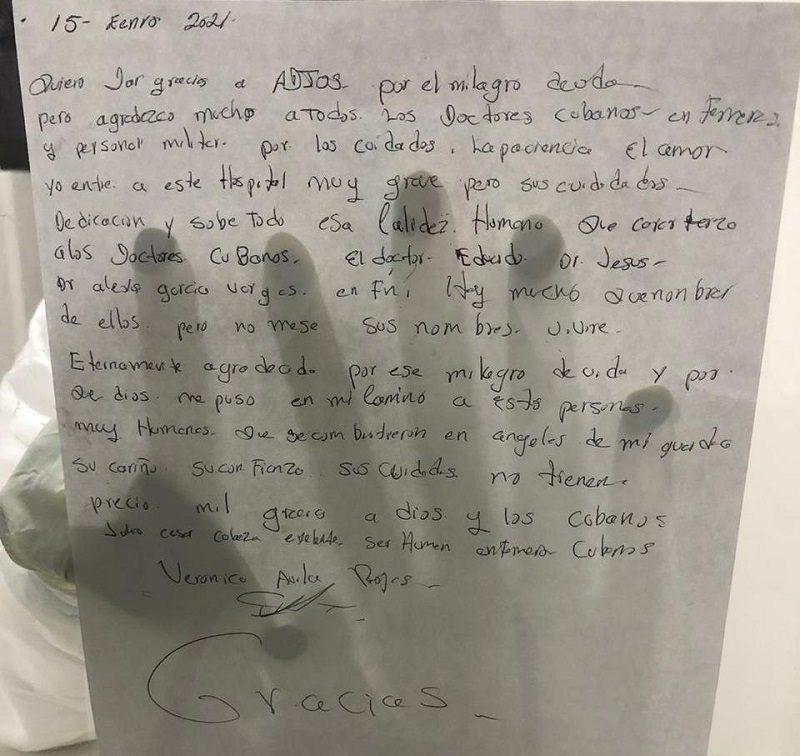 15- Eenro 2021.
Quiero Dar gracias a ADIOS por el milagro devida
pero agradezco mucho a Todos. Los Doctores cubanos en
y personal militar. por los cuidados, la paciencia El amor
yo entre a este Hospital muy grave pero sus cuidados
Dedicacion y sobe Todo esa Calidez. Humana Que
alos Doctores CuBanos. El doctor Eduado. Dr. Jesus-
Dr alexis garcia vargas. en Fin, Hay mucho Quenonbrar
de ellos. pero no mese sus nombres. vivire.
Eternamente agradecida por ese milagro de vida y por
Que dios me puso en mi Camino a Estas personas.
muy Humanas. Que se en angeles de mi guarda
su cariño. su confianza sus cuidados no tienen.
precio. mil gracias a dios y los cobanos
cesar ser Human Cubanos
Veronica Avila Rojas
Gracias